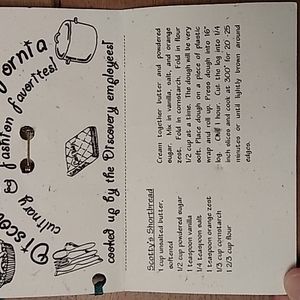 Scotty's Shortbread
1 cup unsalted butter,
softened
1/2 cup powdered sugar
1 teaspoon vanilla
1/4 teaspoon salt
1 teaspoon orange zest
1/3 cup cornstarch
1 2/3 cup flour
Cream together butter and powdered
sugar. Mix in vanilla, salt, and orange
zest. Fold in cornstarch. Fold in flour
1/2 cup at a time. The dough will be very
soft. Place dough on a piece of plastic
wrap and roll up. Press dough into 16"
log. Chill 1 hour. Cut the log into 1/4
inch slices and cook at 300° for 20-25
minutes or until lightly brown around
edges.
ornia
fashion favorites!
culinary
cooked up by the Discovery employees!